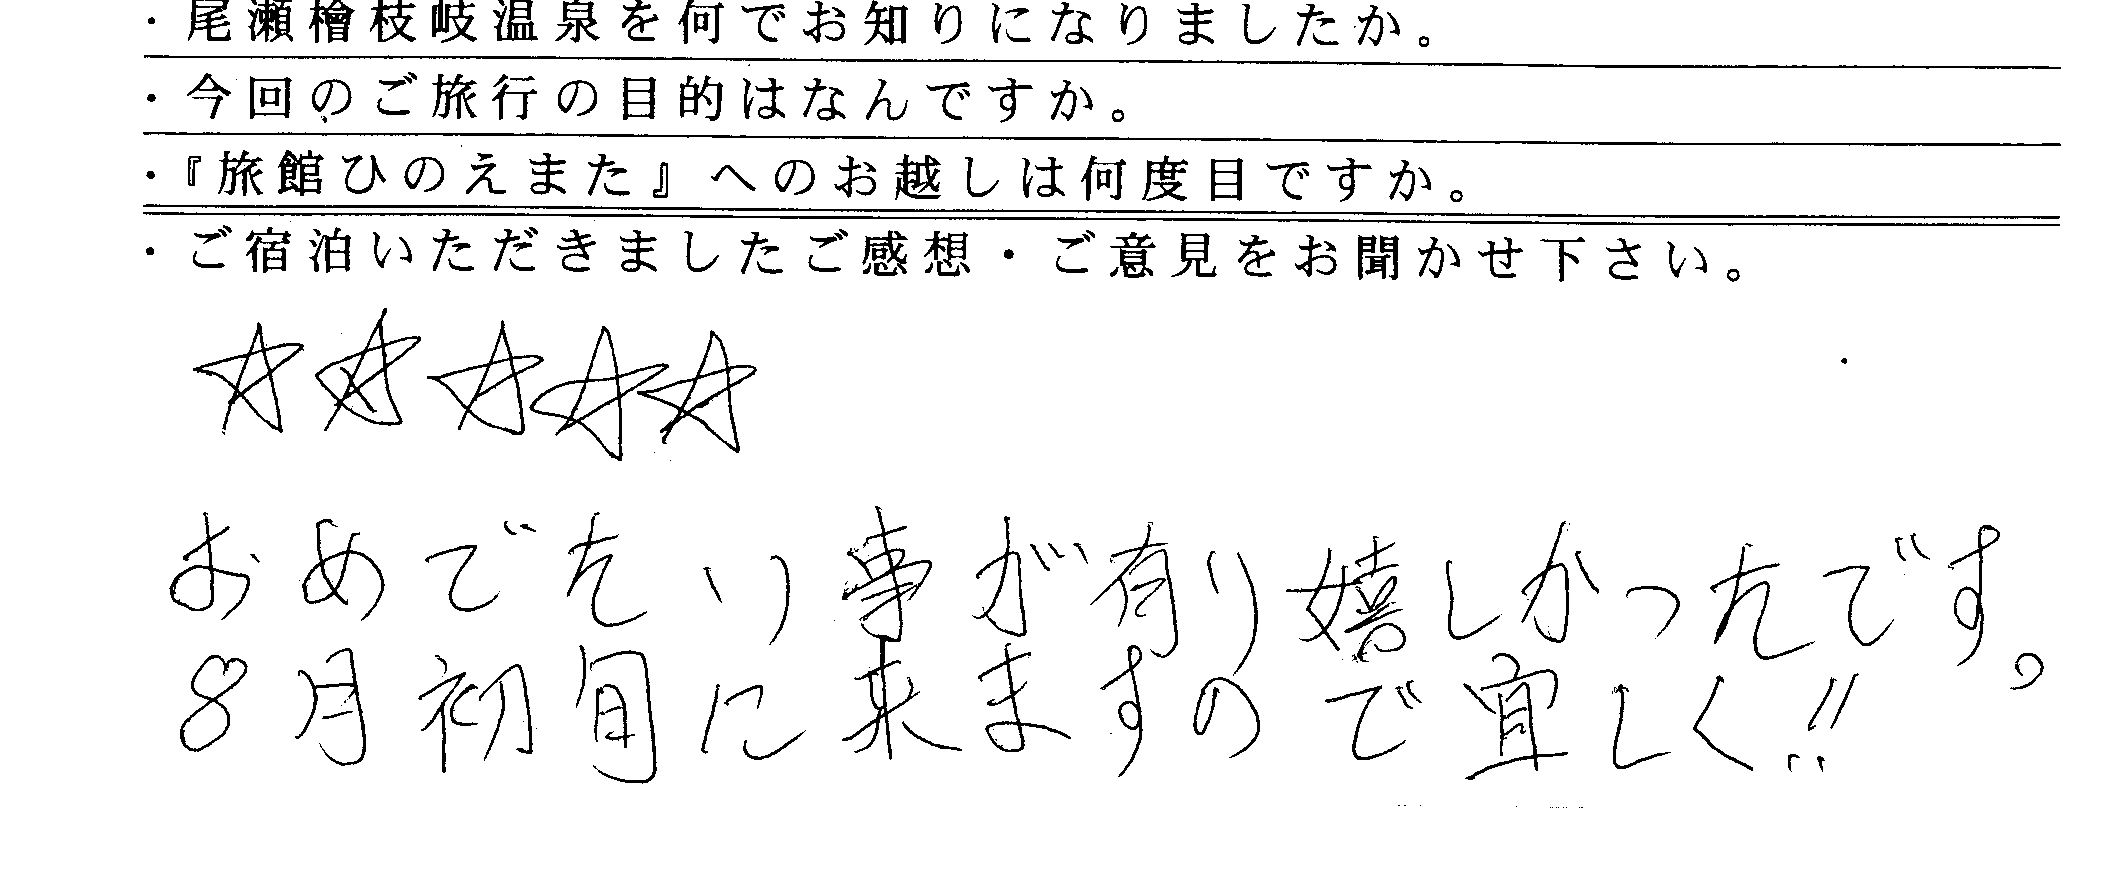 ・尾瀬檜枝岐温泉を何でお知りになりましたか。
・今回のご旅行の目的はなんですか。
・『旅館ひのえまた』へのお越しは何度目ですか。
・ご宿泊いただきましたご感想・ご意見をお聞かせ下さい。
☆☆☆☆☆
おめでたい事が有り嬉しかったです。
8月初旬に来ますので宜しく!!